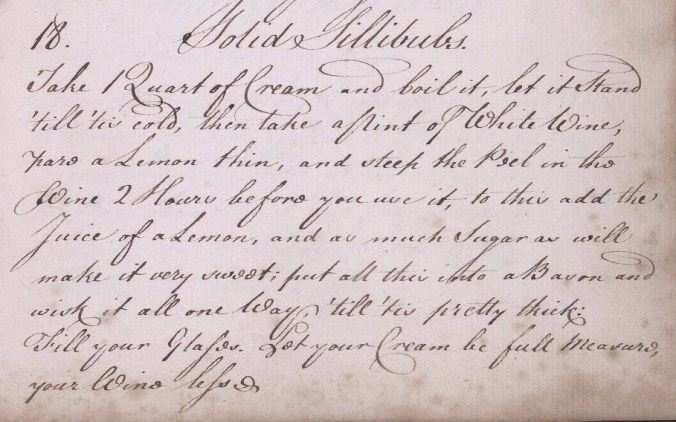 18. Solid Sillibubs.
Take 1 Quart of Cream and boil it, let it Stand
'till 'tis cold, then take a Pint of White Wine,
pare a Lemon thin, and steep the Peel in the
Wine 2 Hours before you use it, to this add the
Juice of a Lemon, and as much Sugar as will
make it very sweet; put all this into a Bason and
wisk it all one Way, 'till 'tis pretty thick:
Fill your Glaſses. Let your Cream be full Measure,
your Wine leſs